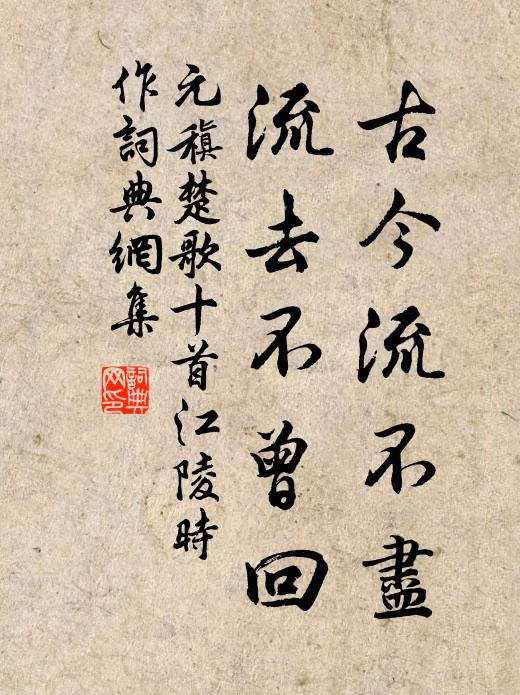 古今流不盡
流去不曾回
元稹楚歌十首江陵時
作詞典網集
詞典
网印